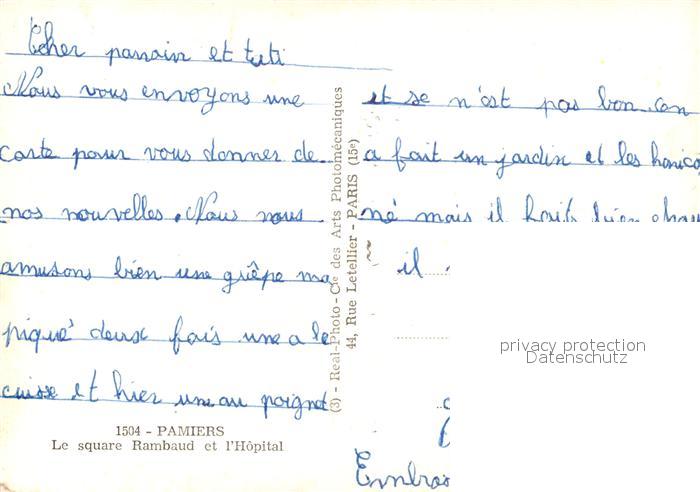 Cher parrain et tati
Nous vous envoyons une
carte pour vous donner de
nos nouvelles. Nous nous
amusons bien une guêpe ma
piqué deux fois une a le
cuisse et hier une au poignet
1504 - PAMIERS
Le square Rambaud et l'Hôpital
(3) - Real-Photo - Cie des Arts Photomécaniques
44, Rue Letellier - PARIS (15e)
et se n'est pas bon. on
a fait un jardin et les harico
né mais il fait bien chau
il
Embras
privacy protection
Datenschutz